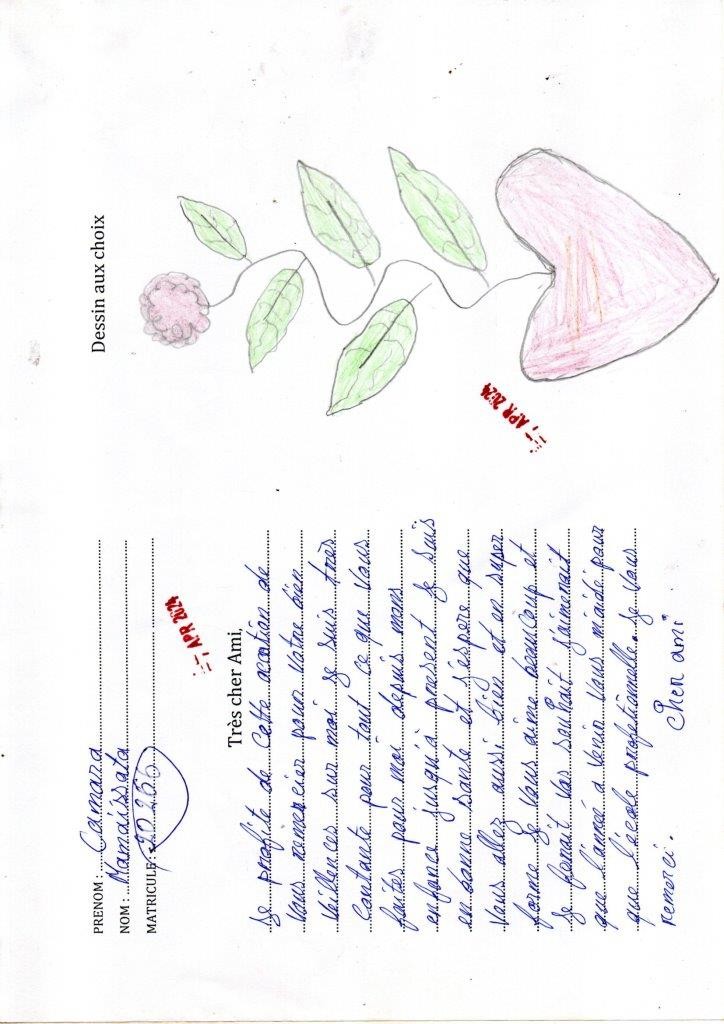 PRENOM : Camara
NOM : Mamaïssata
MATRICULE : 20266
-, APR 2024
Très cher Ami,
Je profite de cette accation de
vous remercier pour votre bien
veillences sur moi je suis très
contante pour tout ce que vous
faites pour moi depuis mons
enfance jusqu'à présent je suis
en bonne santé et j'espère que
vous allez aussi bien et en super
forme je vous aime beaucoup et
je ferait vos souhait j'aimerait
que l'anné a venir vous m'aidé pour
que l'école profetionnelle. Je vous
remerci. Cher ami
Dessin aux choix
-, APR 2024